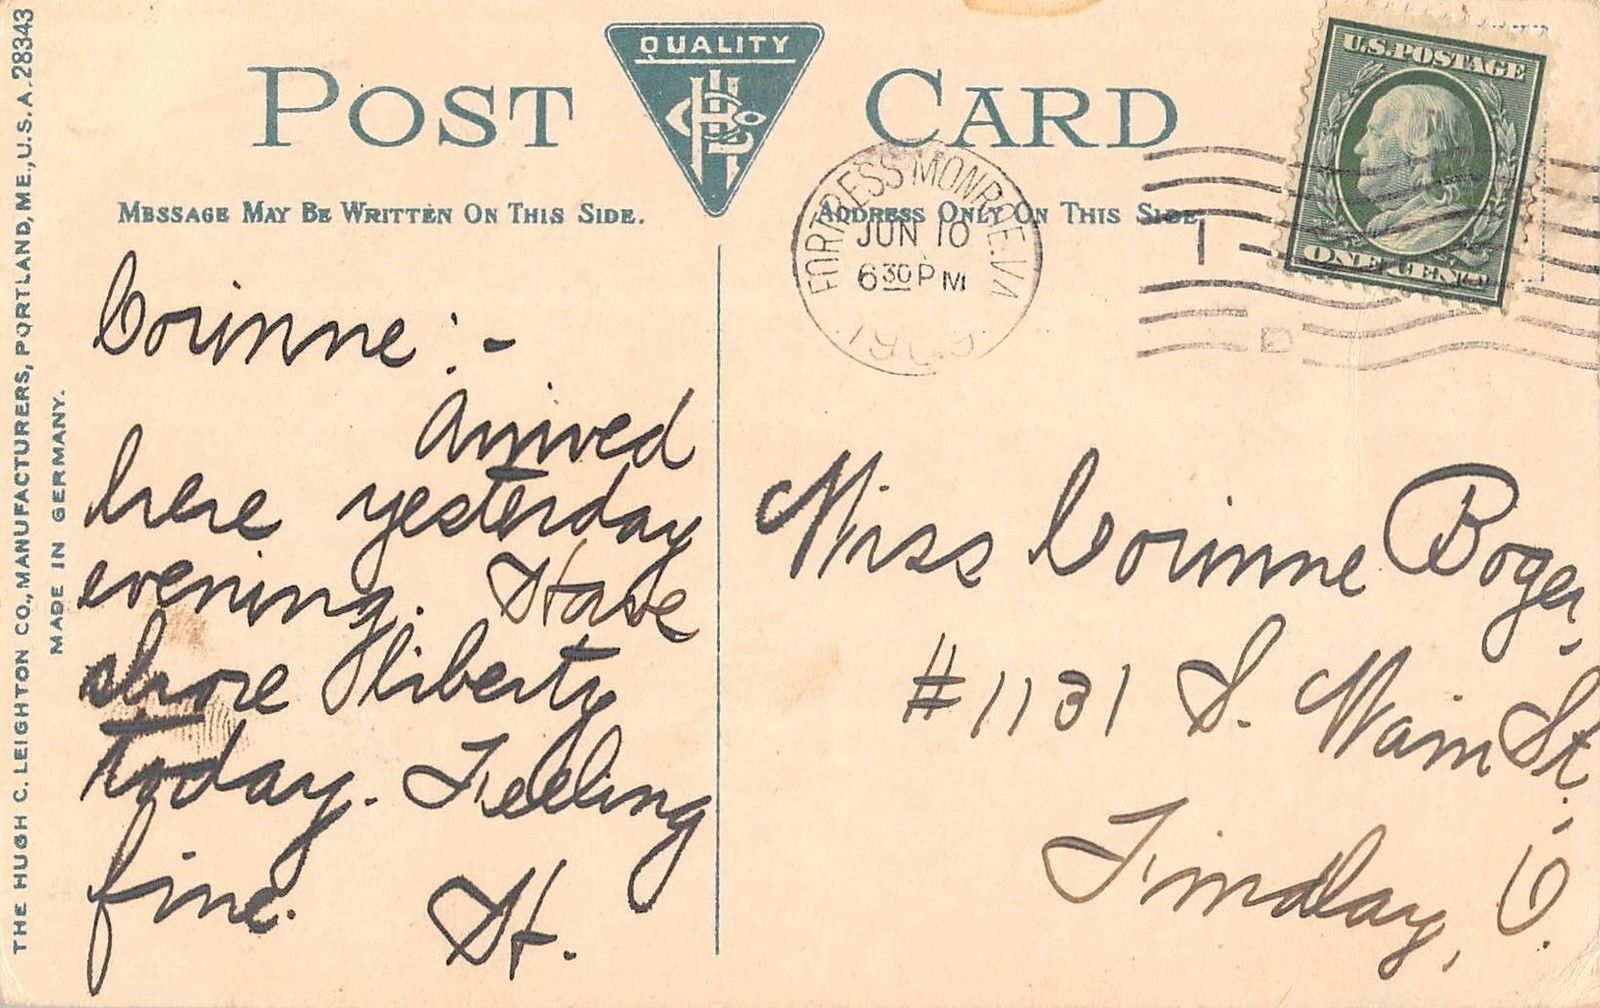 THE HUGH C. LEIGHTON CO., MANUFACTURERS, PORTLAND, ME., U.S.A. 28343
MADE IN GERMANY.
POST CARD
QUALITY
MESSAGE MAY BE WRITTEN ON THIS SIDE.
ADDRESS ONLY ON THIS SIDE.
U.S. POSTAGE
ONE CENT
FORTRESS MONROE, VA
JUN 10
6 30 PM
1909
1
D
Corinne :-
Arrived
here yesterday
evening. Have
shore liberty
today. Feeling
fine.
H.
Miss Corinne Boger,
#1131 S. Main St.,
Findlay, O.